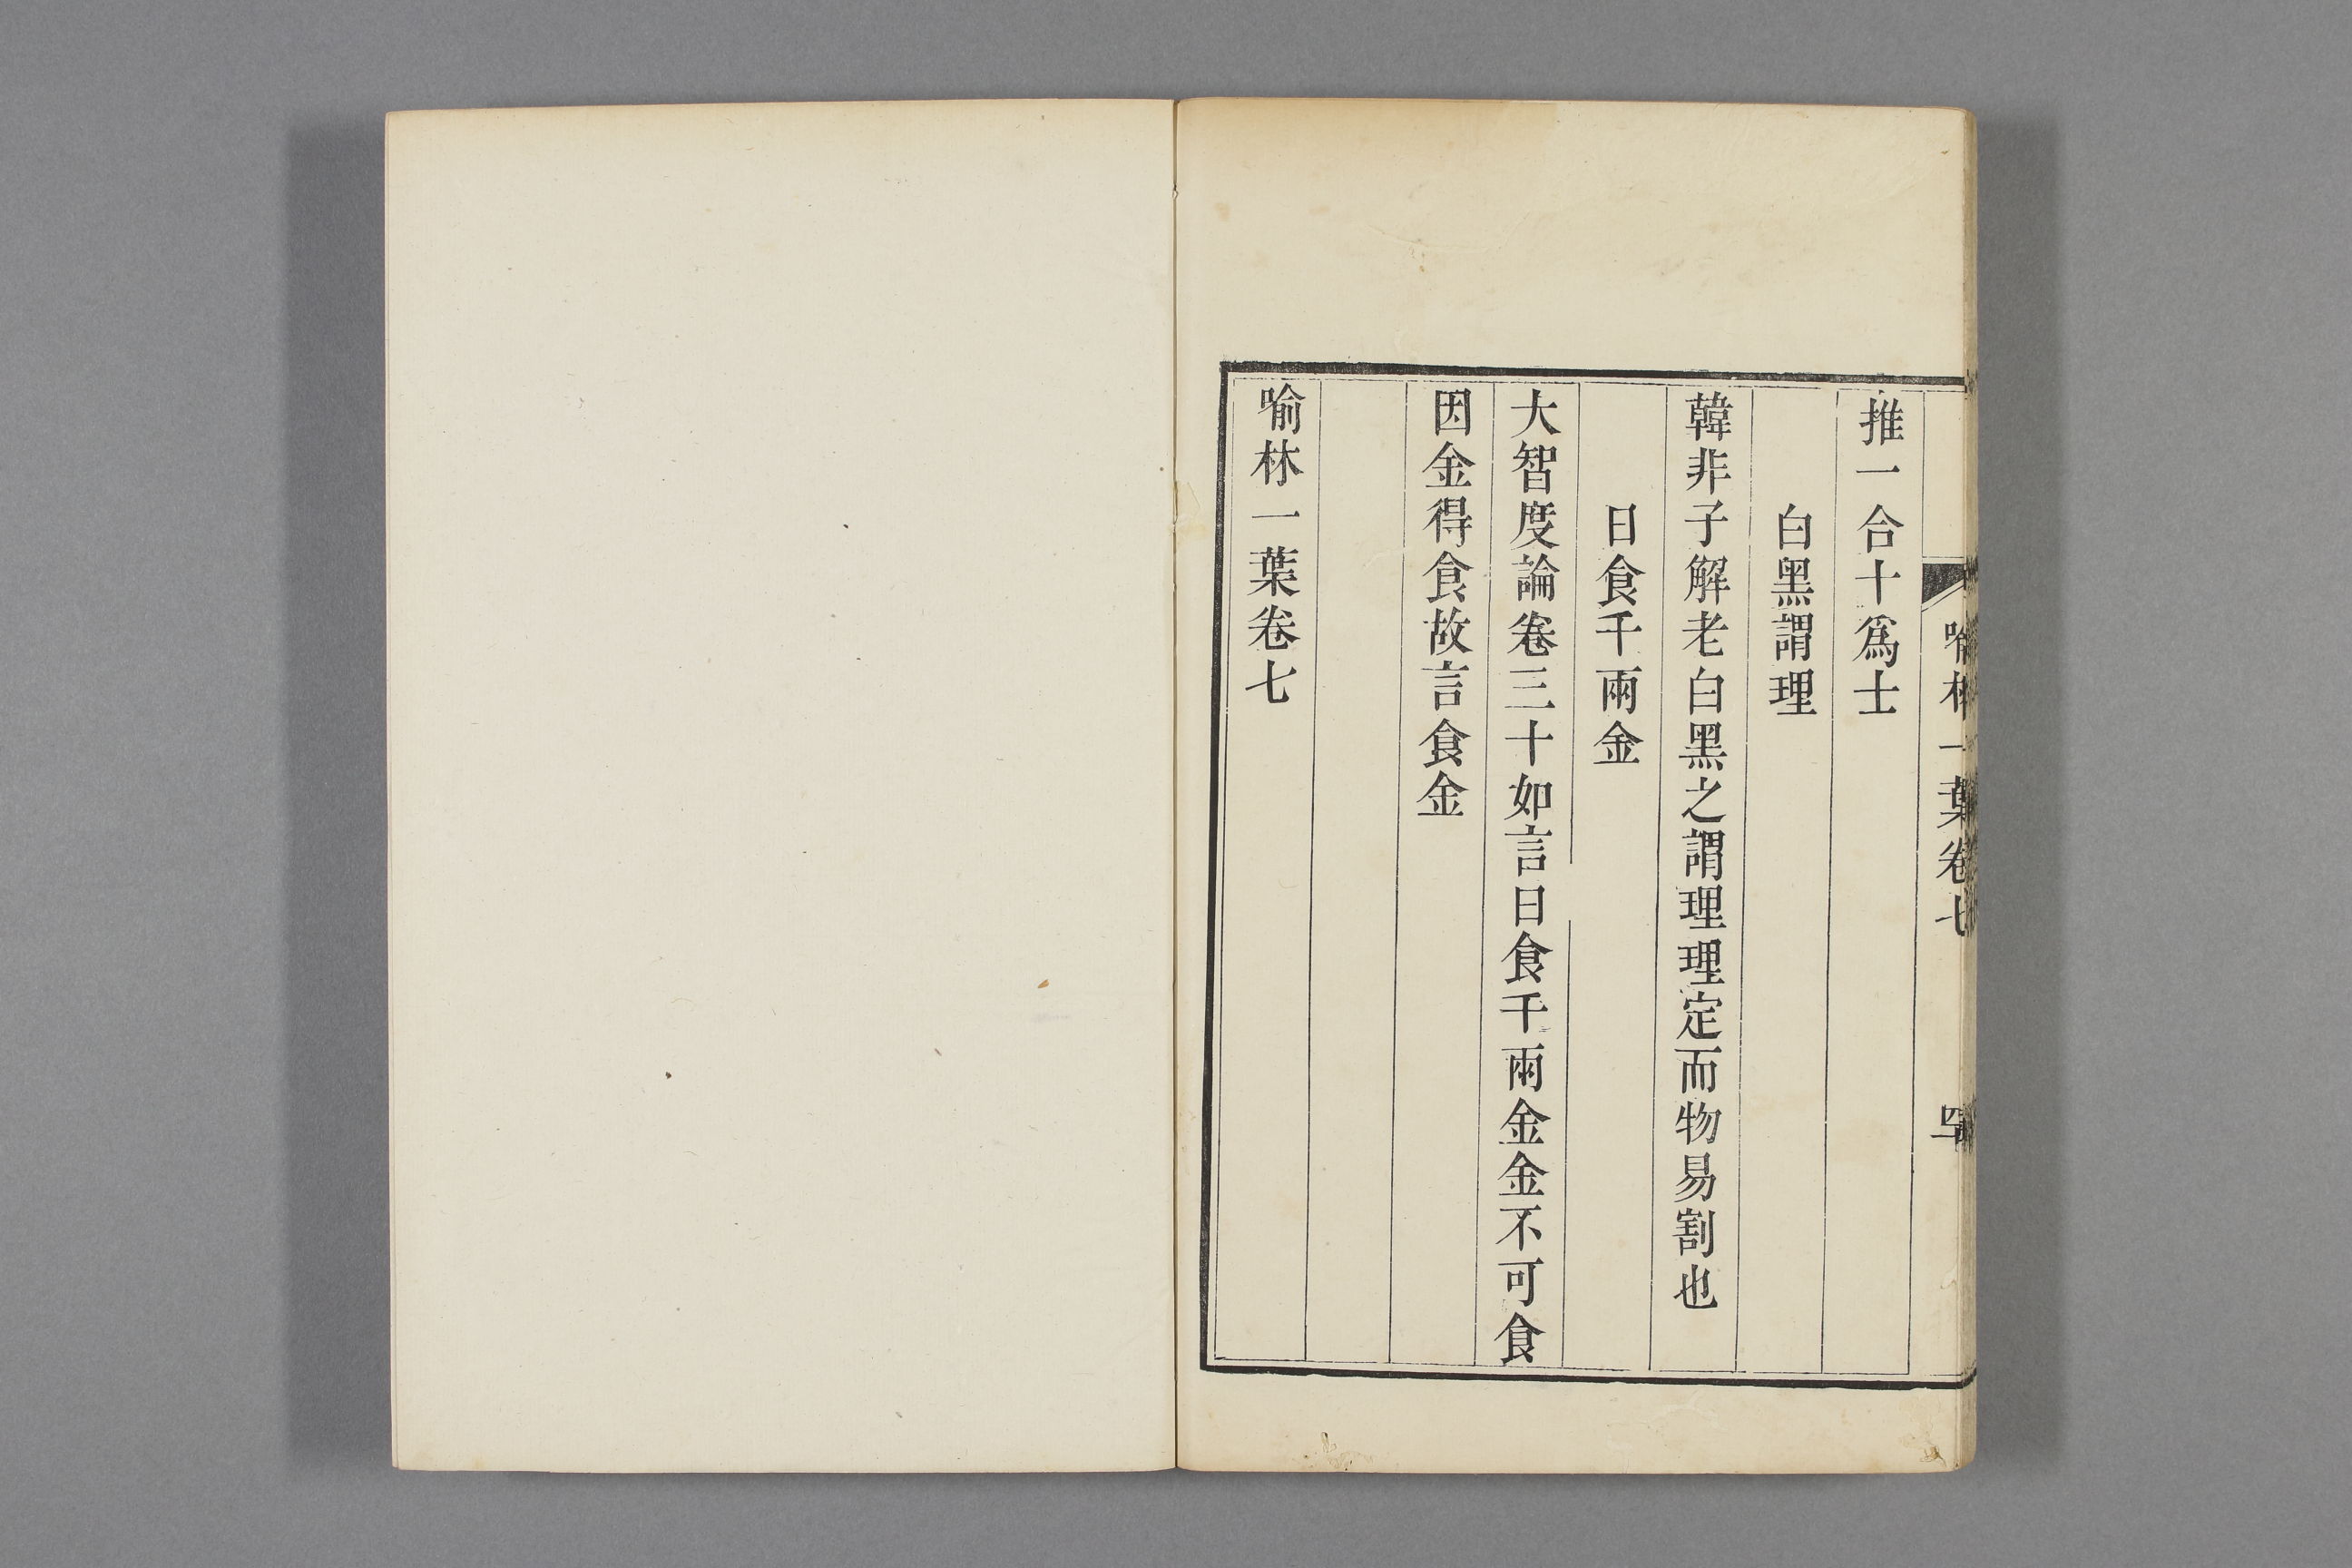 喻林一葉卷七
推一合十爲士
白黑謂理
韓非子解老白黑之謂理理定而物易割也
日食千兩金
大智度論卷三十如言日食千兩金金不可食
因金得食故言食金
喻林一葉卷七